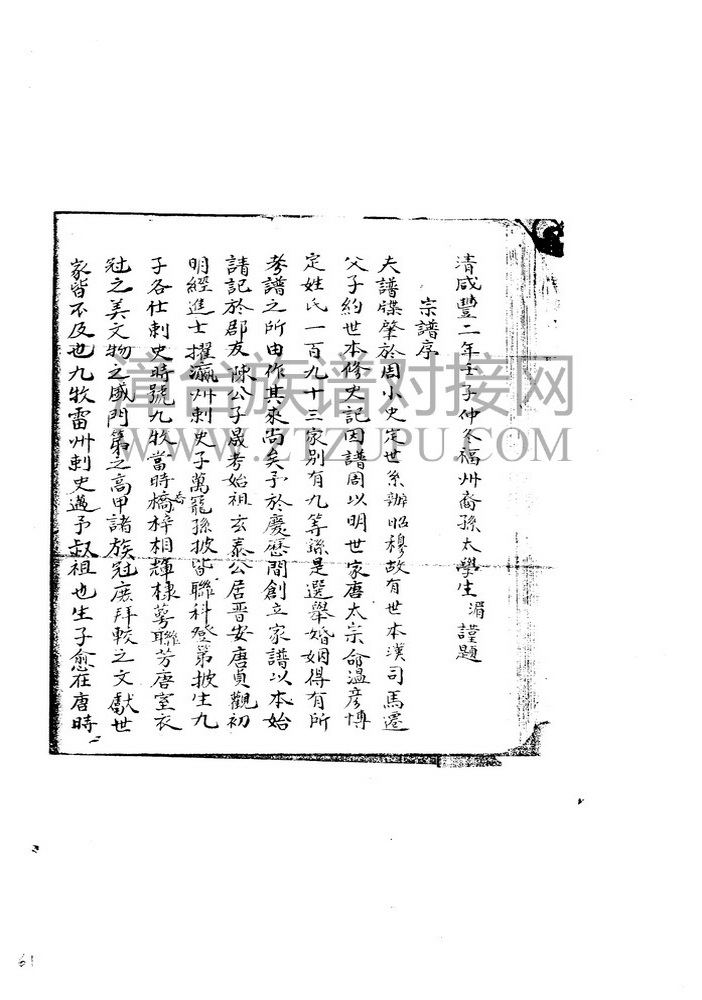 清咸豐二年壬子仲冬福州裔孫太學生湄謹題
宗譜序
夫譜牒肇於周小史定世系辦昭穆故有世本漢司馬遷
父子約世本修史記因譜周以明世家唐太宗命溫彦博
定姓氏一百九十三家別有九等繇是選舉婚姻得有所
考譜之所由作其來尚矣予於慶歷間創立家譜以本始
請記於郡友陳公子晟考始祖玄泰公居晋安唐貞觀初
明經進士擢瀛州剌史子萬寵孫披皆聯科登第披生九
子各仕剌史時號九牧當時橋梓相輝棣萼聯芳唐室衣
冠之美文物之盛門第之高甲諸族冠庶拜較之文獻世
家皆不及也九牧雷州剌史邁予叔祖也生子愈在唐時
章台族谱对接网
WWW.ZTZUPU.COM
61